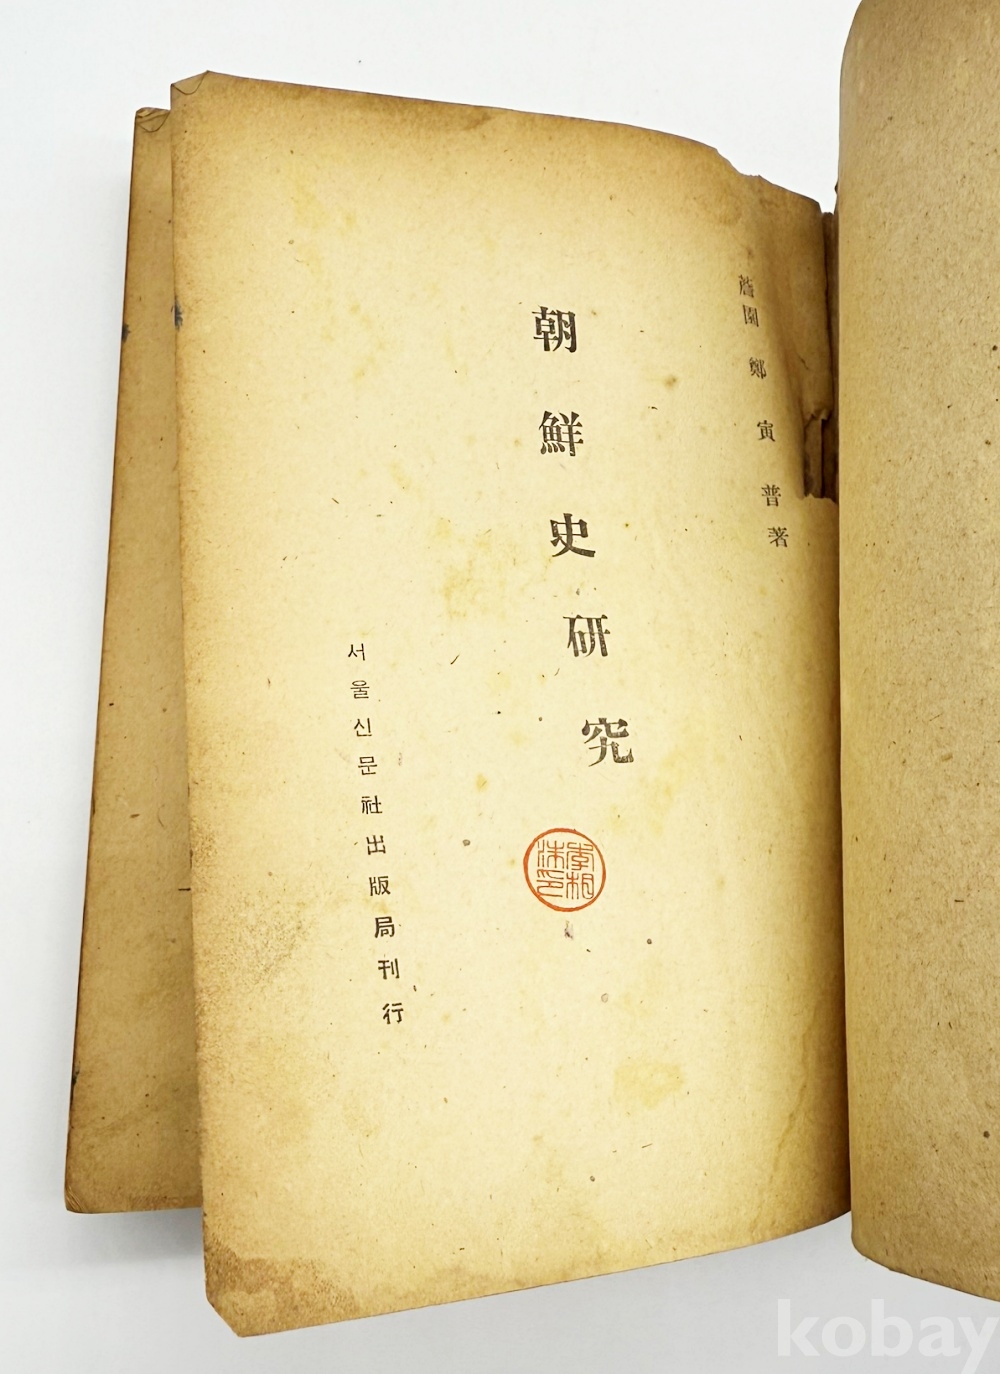 薝園 鄭寅普 著
朝鮮史研究
서울신문社出版局刊行
kobay